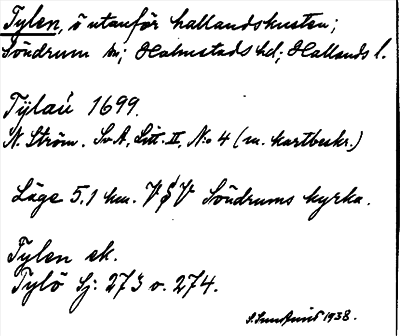 Tylen, ö utanför hallandskusten;
Söndrum sn; Halmstads hd; Hallands l.
Tÿlaü 1699.
N. Ström. Sv A, Litt. II, N:o 4 (m. kartbeskr.)
Läge 5.1 km. V § V Söndrums kyrka.
Tylen ek.
Tylö Sj: 273 o. 274.
1938.